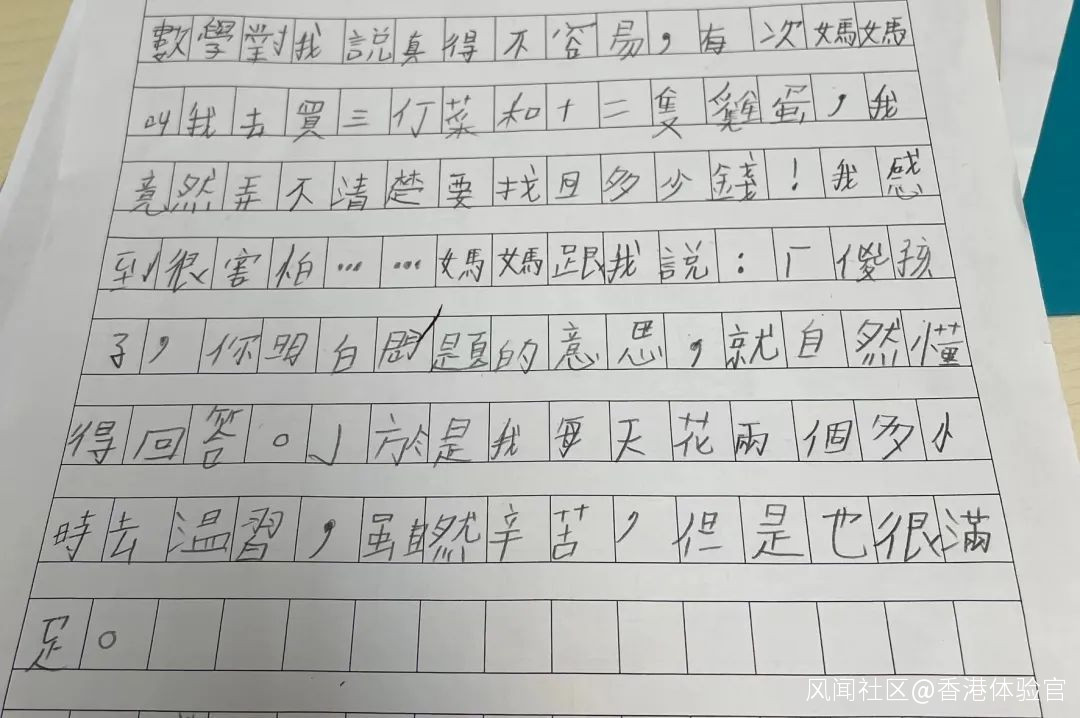 數學對我說真得不容易，有次媽媽
叫我去買三仃菜和十二隻雞蛋，我
竟然弄不清楚要找旦多少錢！我感
到很害怕……媽媽跟我說：「傻孩
子，你明白問題的意思，就自然懂
得回答。」於是我每天花兩個多小
時去温習，雖然辛苦，但是也很滿
足。
风闻社区@香港体验官